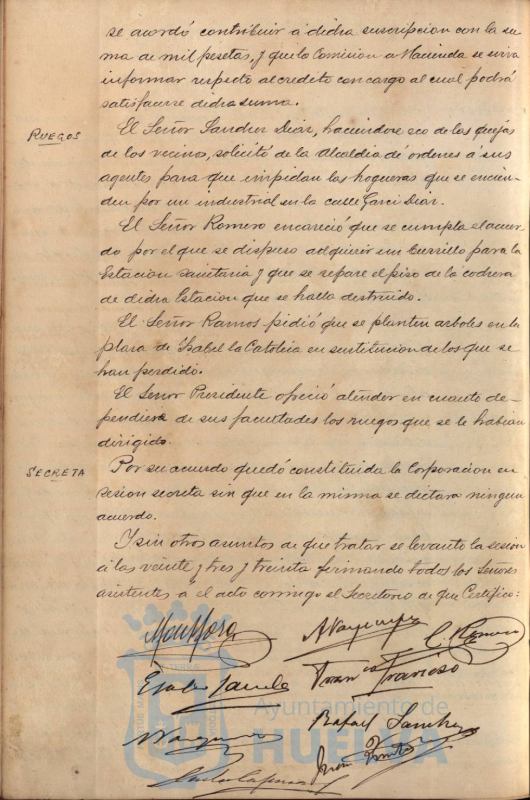 se acordó contribuir á dicha suscripcion con la su
ma de mil pesetas, y que la Comision de Hacienda se sirva
informar respecto al credito con cargo al cual podrá
satisfacerse dicha suma.
RUEGOS
El Señor Sanchez Diaz, haciendose eco de las quejas
de los vecinos, solicitó de la Alcaldia dé ordenes á sus
agentes para que impidan las hogueras que se encien-
den por un industrial en la calle Garci Diaz.
El Señor Romero encareció que se cumpla el acuer
do por el que se dispuso adquirir un burrillo para la
Estacion sanitaria y que se repare el piso de la
de dicha Estacion que se halla destruido.
El Señor Ramos pidió que se planten arboles en la
plaza de Isabel la Catolica en sustitucion de los que se
han perdido.
El Señor Presidente ofreció atender en cuanto de-
pendiera de sus facultades los ruegos que se le habian
dirigido.
SECRETA
Por su acuerdo quedó constituida la Corporacion en
sesion secreta sin que en la misma se dictara ningun
acuerdo.
Y sin otros asuntos de que tratar se levantó la sesión
á las veinte y tres y treinta firmando todos los Señores
asistentes a el acto conmigo el Secretario de que Certifico:
C. Romero
Rafael Sanchez
Ayuntamiento de
HUELVA